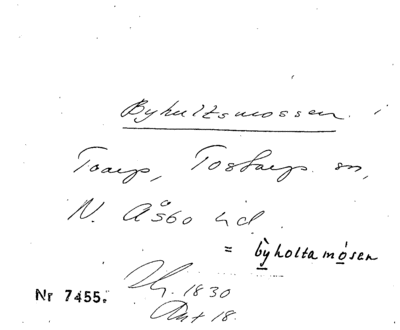 Byhultsmossen. i
Toarp, Tostarp. sn,
N. Åsbo hd.
= byholtamósen
Nr 7455.
1830
Akt 18.